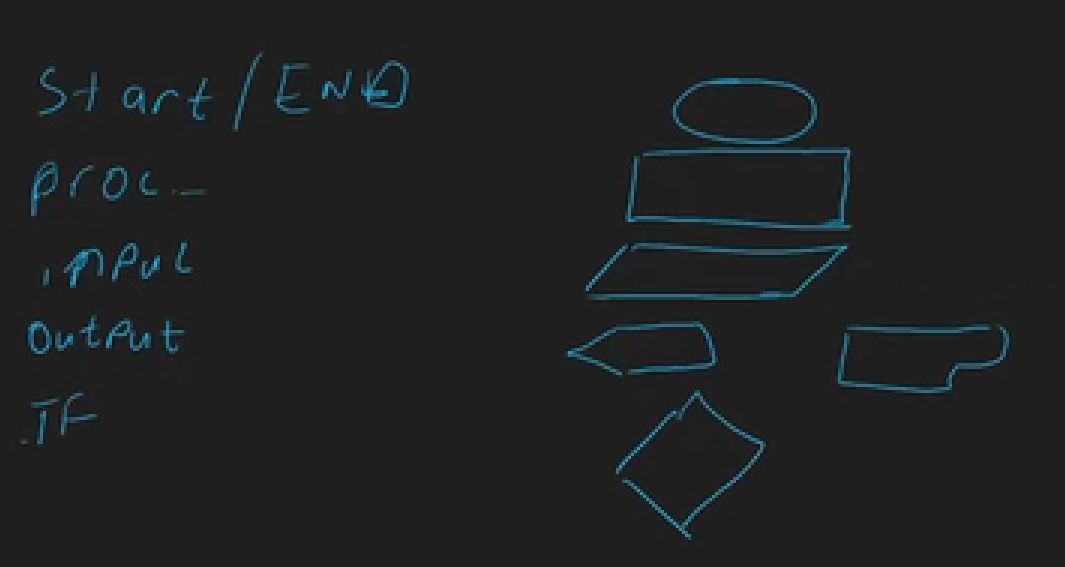 Start/END
proc..
input
output
IF